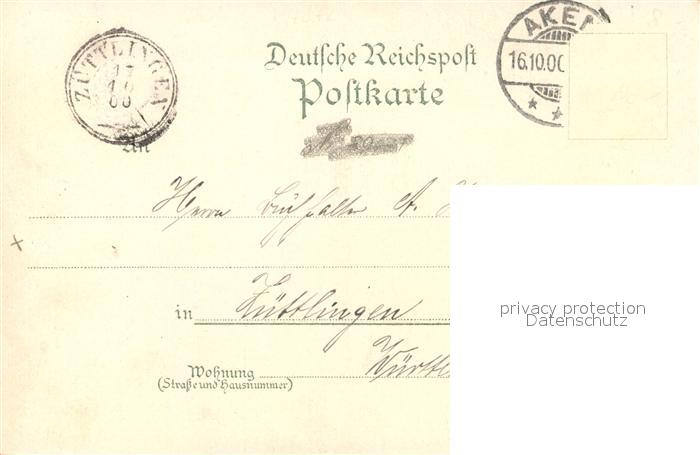 ZÜTTLINGEN
17
10
00
AKEN
16.10.00
Deutsche Reichspost
Postkarte
An
Herrn Buchhalter A.
in Züttlingen
Württ
Wohnung
(Straße und Hausnummer)
privacy protection
Datenschutz